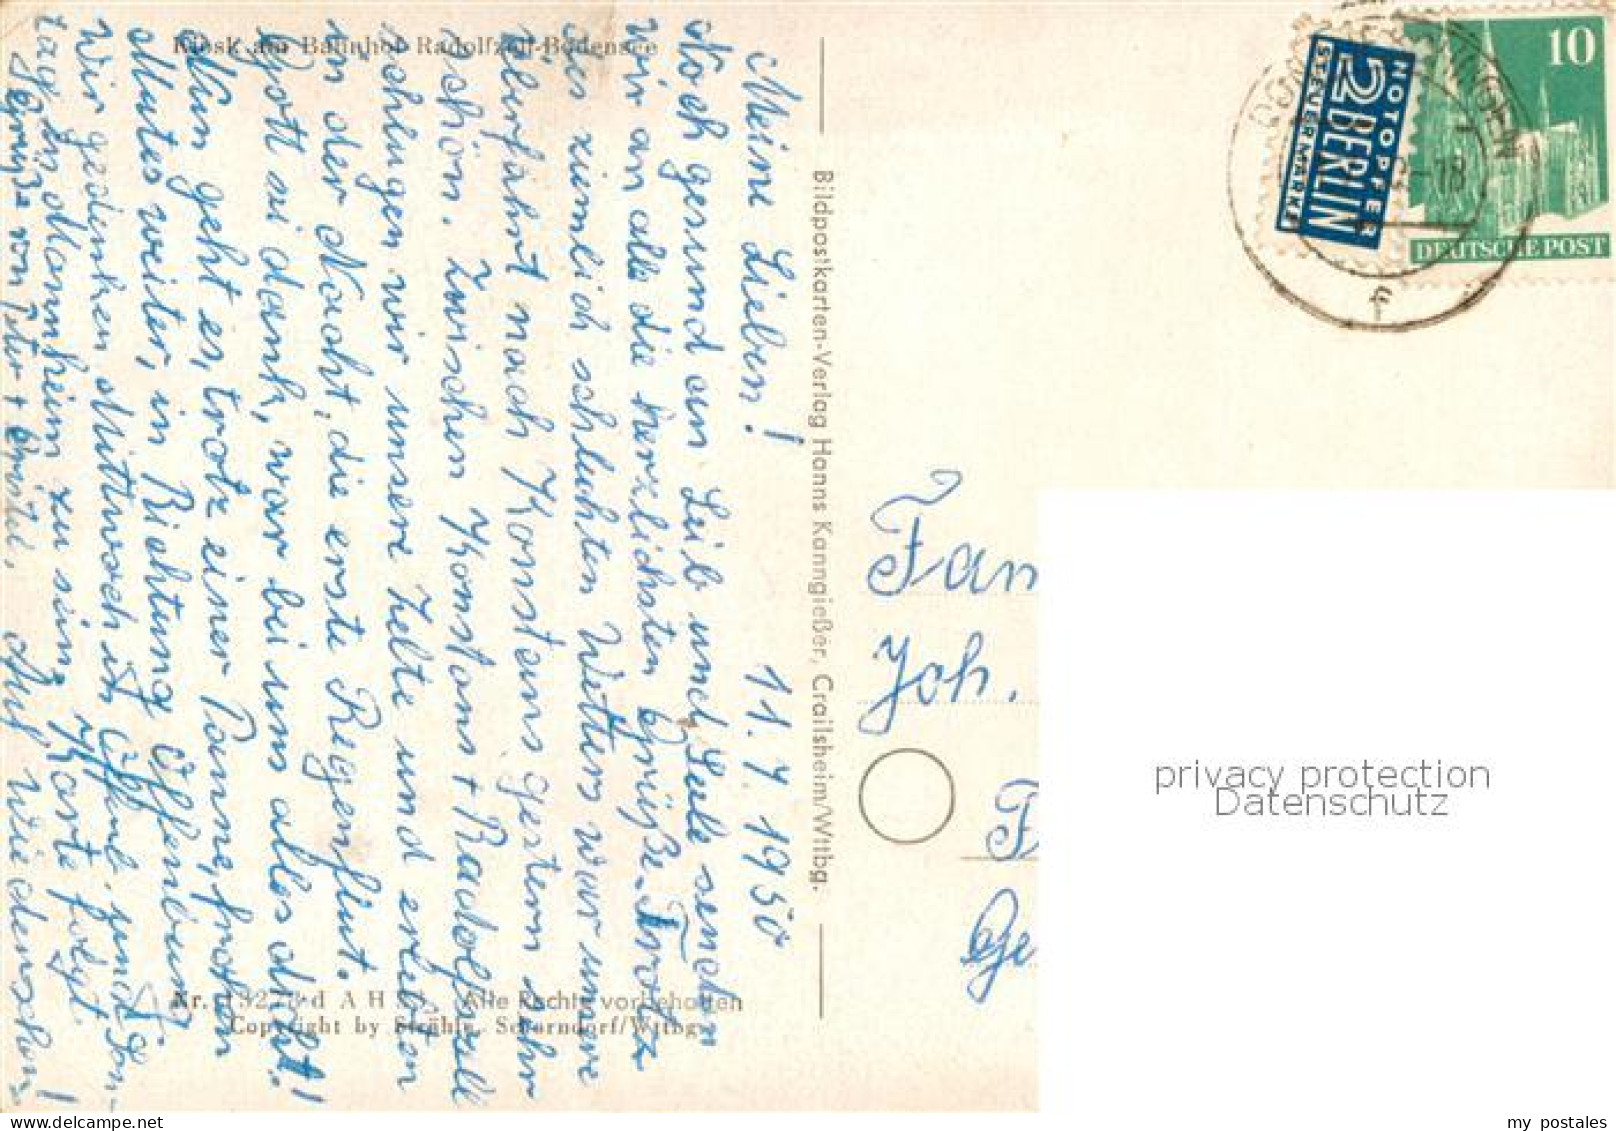 Kiosk am Bahnhof Radolfzell-Bodensee
Meine Lieben! 11. 7. 1950
Noch gesund an Leib und Seele senden
wir an alle die herzlichsten Grüße. Trotz
des ziemlich schlechten Wetters war unsere
Überfahrt nach Konstanz gestern sehr
schön. Zwischen Konstanz + Radolfzell
schlugen wir unsere Zelte und erlebten
in der Nacht, die erste Regenflut.
Gott sei dank, war bei uns alles dicht!
Nun geht es, trotz einer Panne, frohen
Mutes weiter, in Richtung Offenburg
Wir gedenken Mittwoch in Offenb. und Sonn-
tag in Mannheim zu sein. Karte folgt.
Grüße von Peter + Auf Wiederschau'n!
Nr. d A H Alle Rechte vorbehalten
Copyright by Strähle, Schorndorf/Wttbg.
Bildpostkarten-Verlag Hanns Kanngießer, Crailsheim/Wttbg.
NOTOPFER
2 BERLIN
STEUERMARKE
10
DEUTSCHE POST
DONAUESCHINGEN
-18
f
Fam
Joh.
F
Ge
privacy protection
Datenschutz
my postales